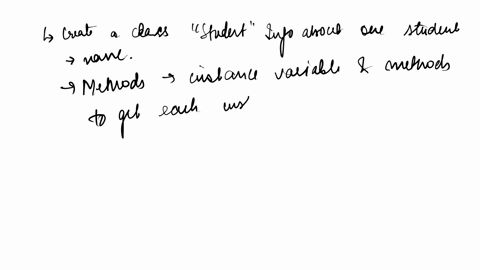 ↳ Create a class "Student" Info about one student
→ name.
→ Methods → instance variable & methods
to get each ins